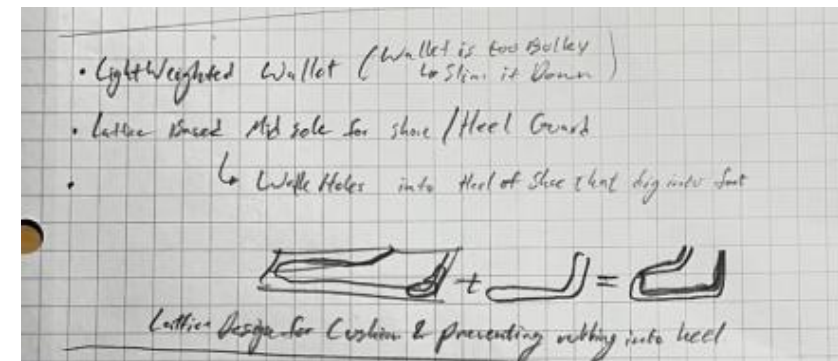 • LightWeighted Wallet (Wallet is too Bulkey
↳ Slim it Down)
• Lattice Based Mid sole for shoe / Heel Guard
↳ Walk Holes into Heel of Shoe that dig into foot
+ =
Lattice Design for Cushion & preventing rubbing into heel